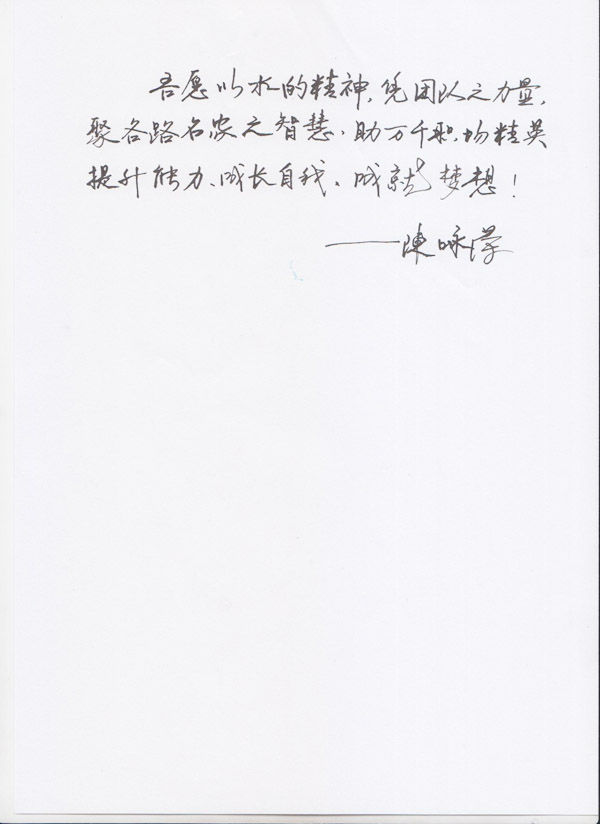 吾愿以水的精神,凭团队之力量,
聚各路名家之智慧,助万千职场精英
提升能力、成长自我、成就梦想!
——陳咏